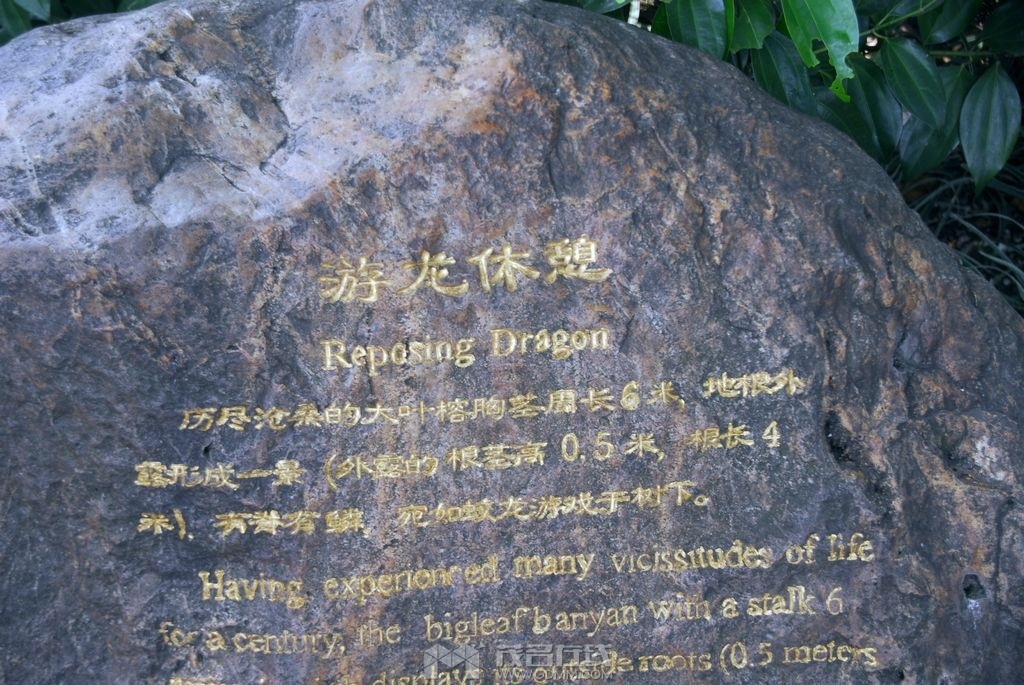 游龙休憩
Reposing Dragon
历尽沧桑的大叶榕胸茎周长6米，地根外
露形成一景（外露的根茎高0.5米，根长4
米），有脊有鳞，宛如蛟龙游戏于树下。
Having experienced many vicissitudes of life
for a century, the bigleaf banyan with a stalk 6
displays its outside roots (0.5 meters
茂名在线